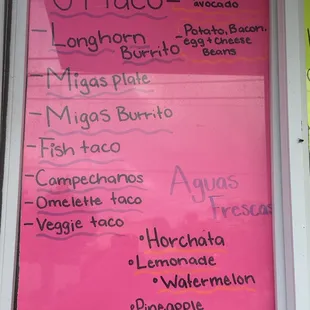 taco -
avocado
- Longhorn Burrito - Potato, Bacon,
egg + cheese
Beans
- Migas plate
- Migas Burrito
- Fish taco
- Campechanos
- Omelette taco
- Veggie taco
Aguas
Frescas
• Horchata
• Lemonade
• Watermelon
• Pineapple